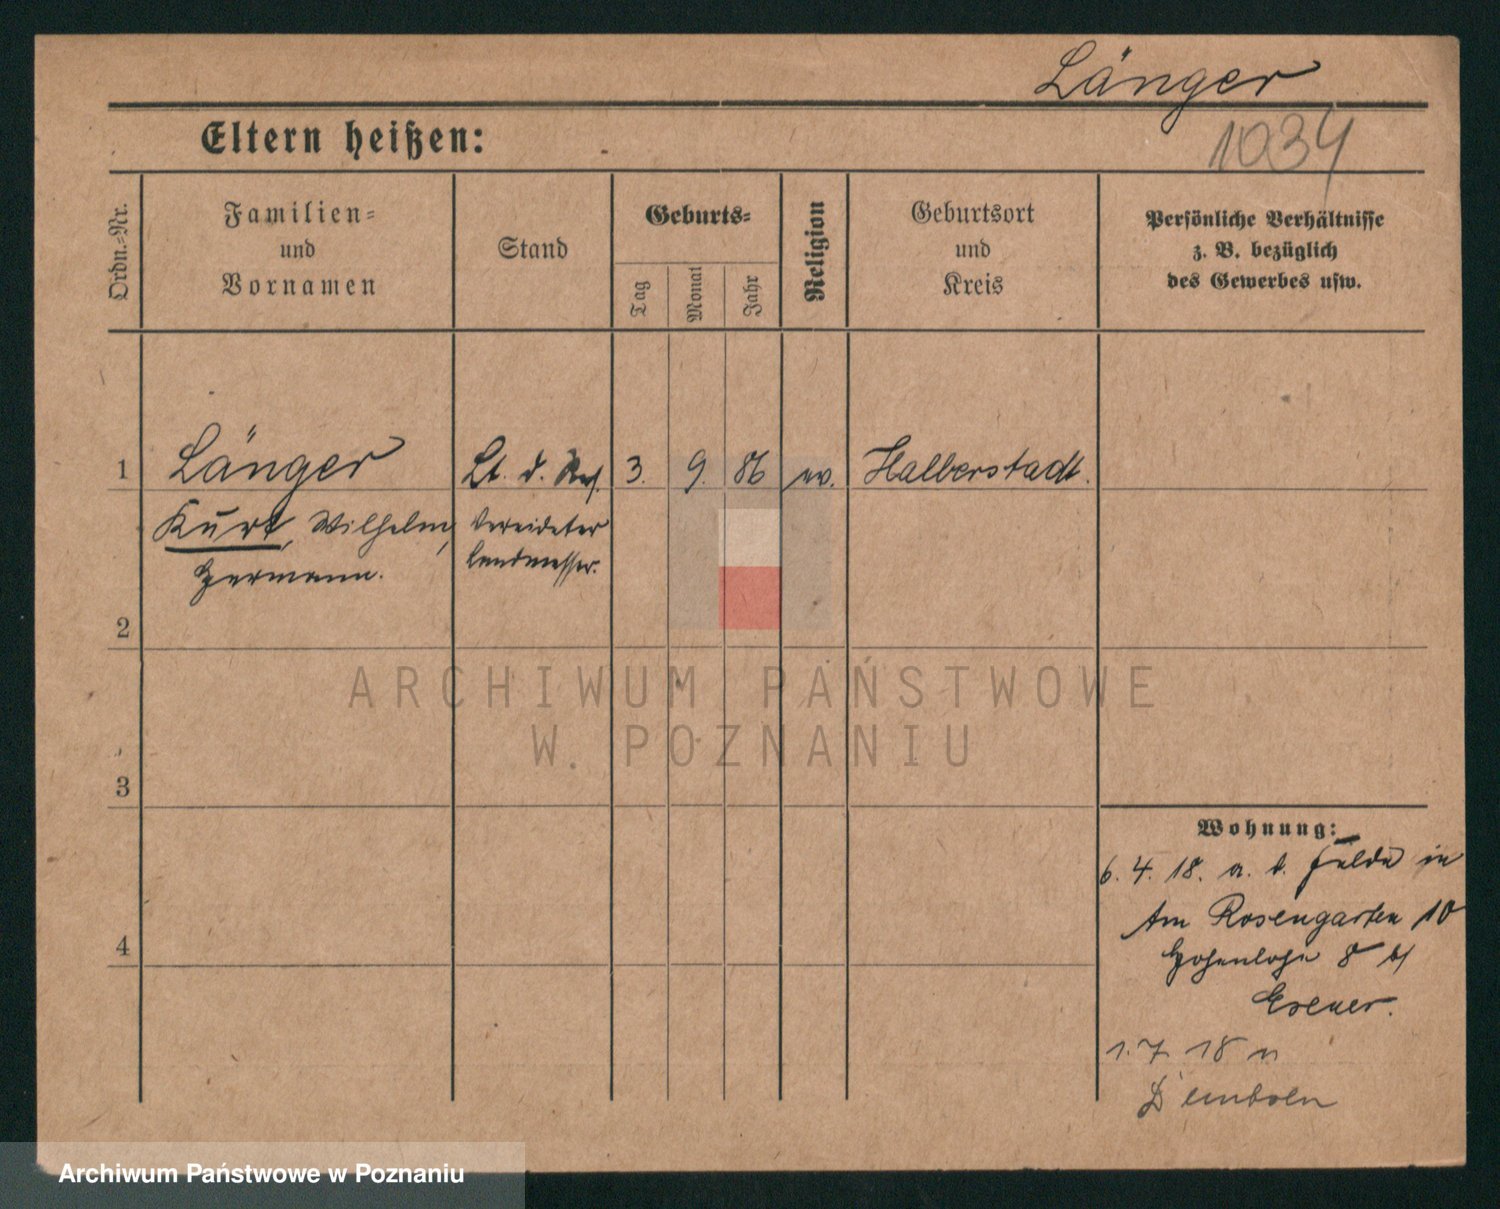 Länger
Eltern heißen:
1034
Ordn.-Nr.
Familien-
und
Vornamen
Stand
Geburts-
Tag
Monat
Jahr
Religion
Geburtsort
und
Kreis
Persönliche Verhältnisse
z. B. bezüglich
des Gewerbes usw.
1
Länger
Lt. d. Res.
3.
9.
86
ev.
Halberstadt.
Kurt, Wilhelm,
Hermann.
Vereideter
Landmesser.
2
3
4
Wohnung:
6. 4. 18. a. d. Felde in
Am Rosengarten 10
Hohenlohe 8 b/
1. 7 18 n
ARCHIWUM PAŃSTWOWE
W POZNANIU
Archiwum Państwowe w Poznaniu